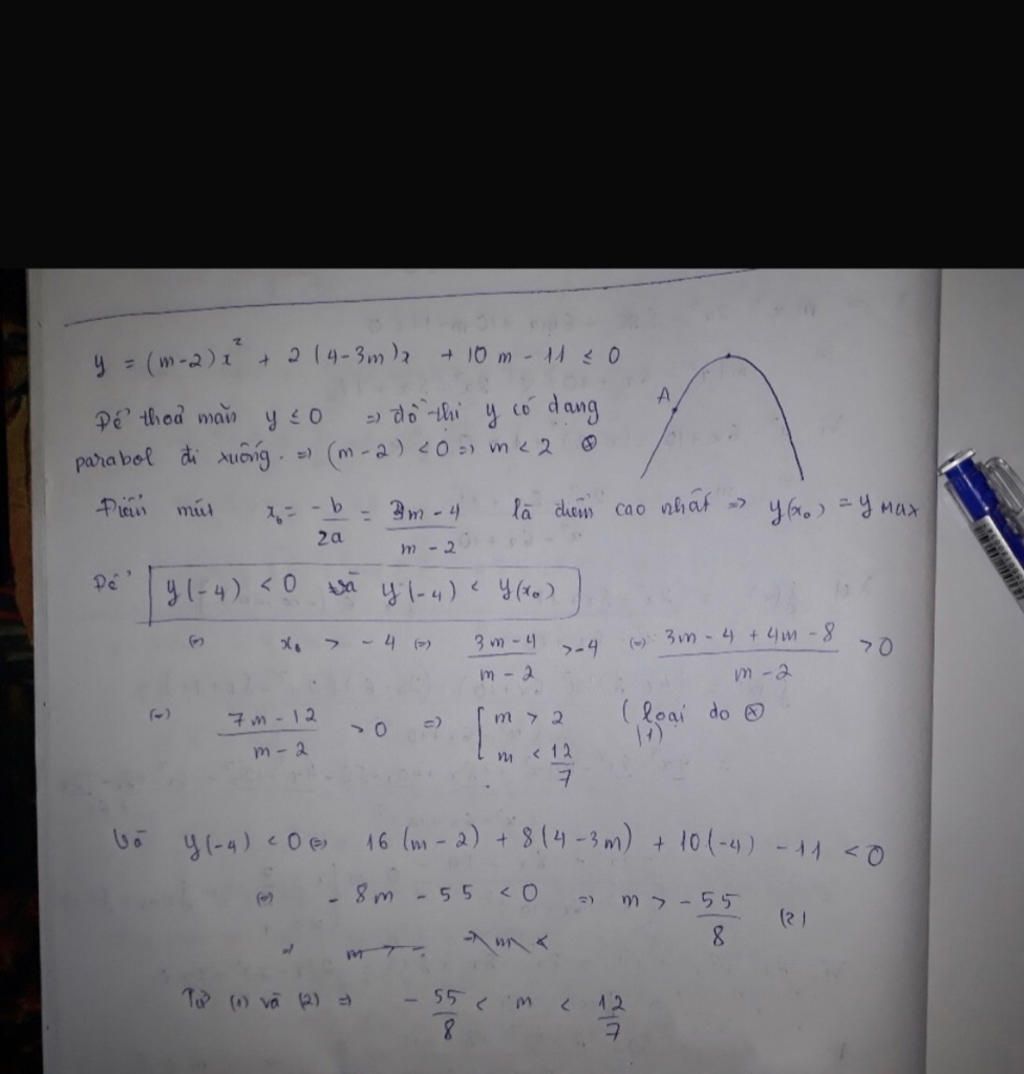 y = (m-2)x² + 2(4-3m)x + 10m - 11 ≤ 0
A
Để thoả mãn y ≤ 0 => đồ thị y có dạng
parabol đi xuống. => (m-2) < 0 => m < 2 ⊗
Điểm mút x₀ = -b/2a = 3m-4/m-2 là điểm cao nhất => y(x₀) = y MAX
Để y(-4) < 0 và y(-4) < y(x₀)
(=) x₀ > -4 (=) 3m-4/m-2 > -4 (=) 3m-4+4m-8/m-2 > 0
(=) 7m-12/m-2 > 0 => [ m > 2 (loại do ⊗
m < 12/7 (1)
Và y(-4) < 0 (=) 16(m-2) + 8(4-3m) + 10(-4) - 11 < 0
(=) -8m - 55 < 0 => m > -55/8 (2)
Từ (1) và (2) => -55/8 < m < 12/7